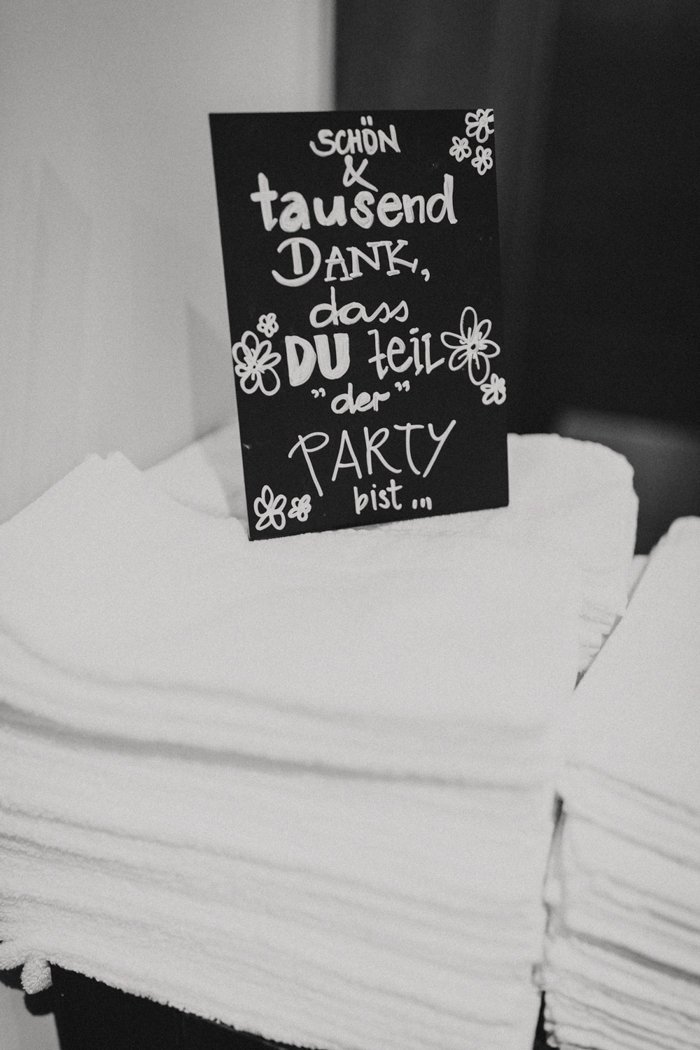 SCHÖN
&
tausend
DANK,
dass
DU teil
"der"
PARTY
bist...